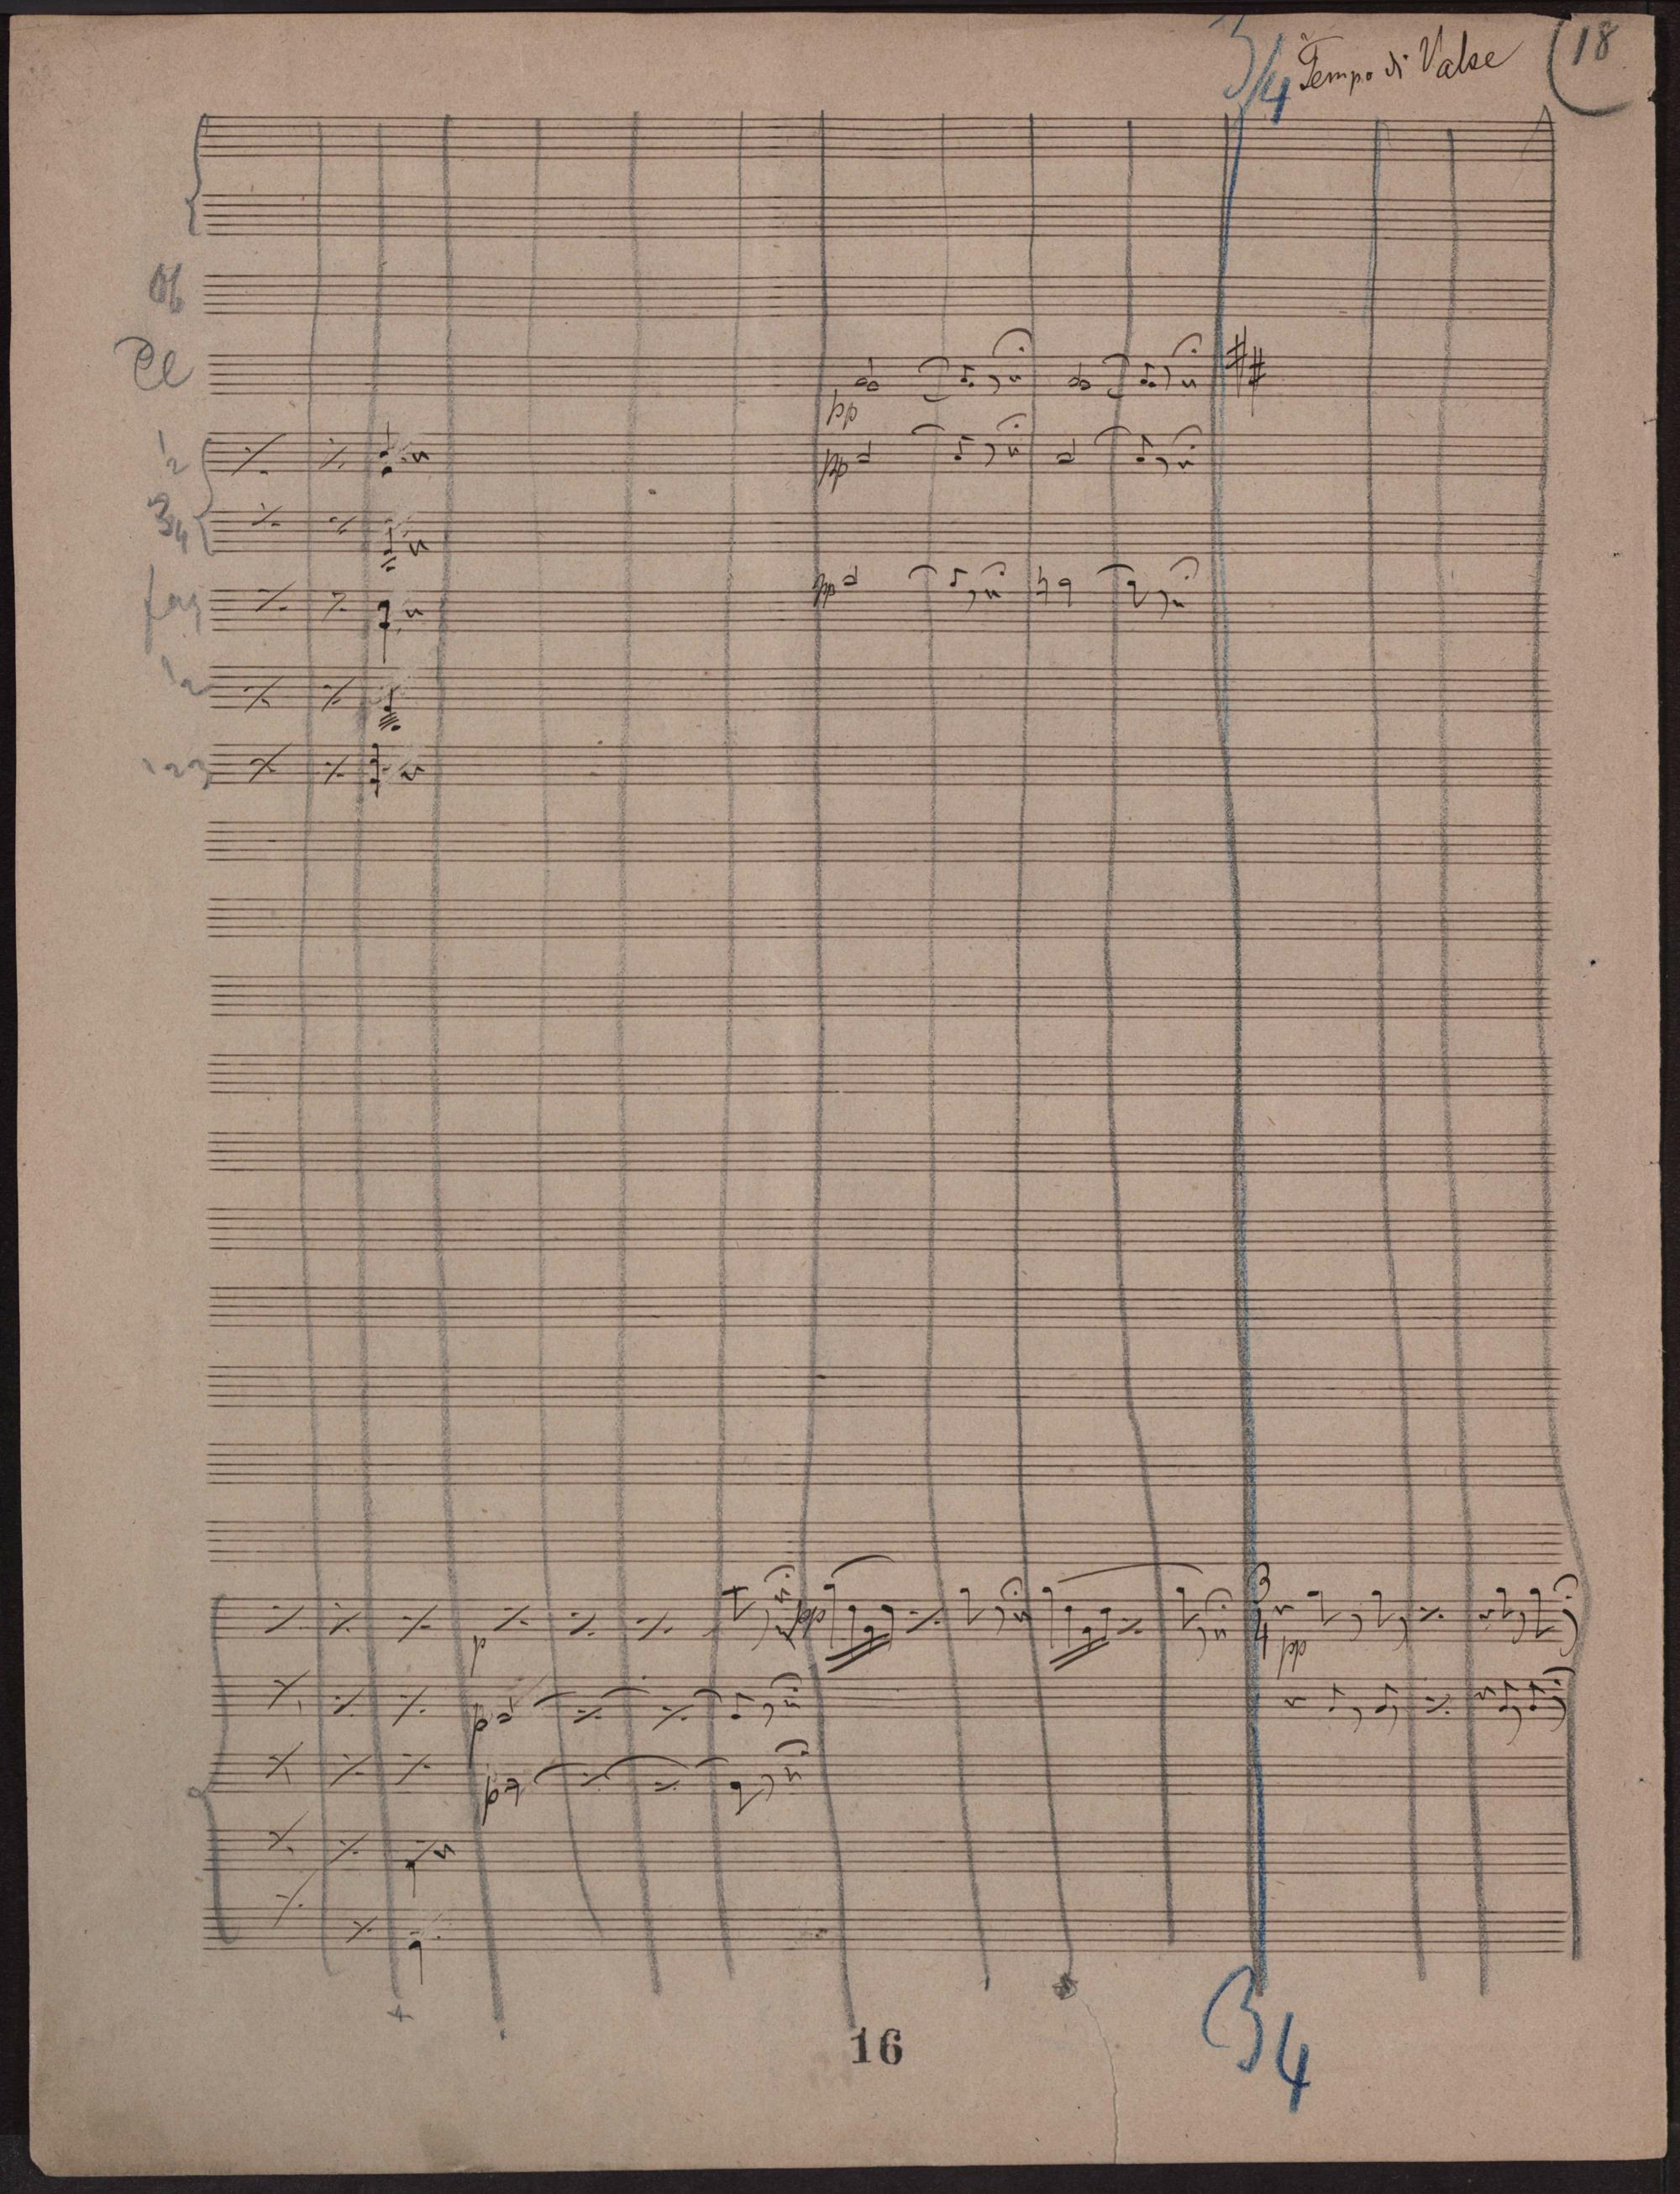 3/4 Tempo di Valse
18
Ob
Cl
1 2
3 4
fag
1 2
1 2 3
pp
pp
pp
p
pp
3 4
pp
p
p
16
3 4